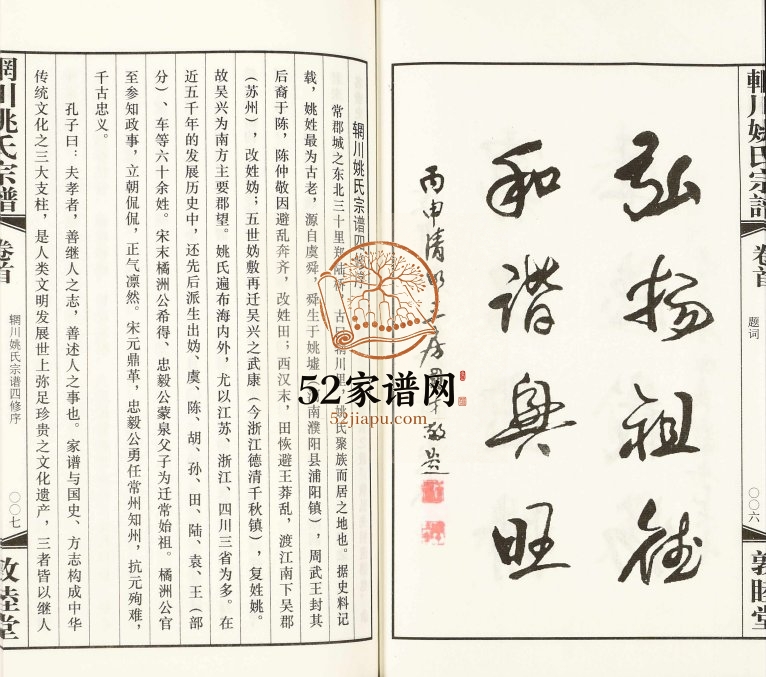 輞川姚氏宗譜
卷首
题词
〇〇六
敦睦堂
弘扬祖德
和谐兴旺
丙申清明
敬题
辋川姚氏宗谱四修序
常郡城之东北三十里郑陆桥，古曰辋川里，姚氏聚族而居之地也。据史料记
载，姚姓最为古老，源自虞舜，舜生于姚墟（河南濮阳县浦阳镇），周武王封其
后裔于陈，陈仲敬因避乱奔齐，改姓田；西汉末，田恢避王莽乱，渡江南下吴郡
（苏州），改姓妫；五世妫敷再迁吴兴之武康（今浙江德清千秋镇），复姓姚。
故吴兴为南方主要郡望。姚氏遍布海内外，尤以江苏、浙江、四川三省为多。在
近五千年的发展历史中，还先后派生出妫、虞、陈、胡、孙、田、陆、袁、王（部
分）、车等六十余姓。宋末橘洲公希得、忠毅公蒙泉父子为迁常始祖。橘洲公官
至参知政事，立朝侃侃，正气凛然。宋元鼎革，忠毅公勇任常州知州，抗元殉难，
千古忠义。
孔子曰：夫孝者，善继人之志，善述人之事也。家谱与国史、方志构成中华
传统文化之三大支柱，是人类文明发展世上弥足珍贵之文化遗产，三者皆以继人
輞川姚氏宗譜
卷首
辋川姚氏宗谱四修序
〇〇七
敦睦堂
52家谱网
52jiapu.com